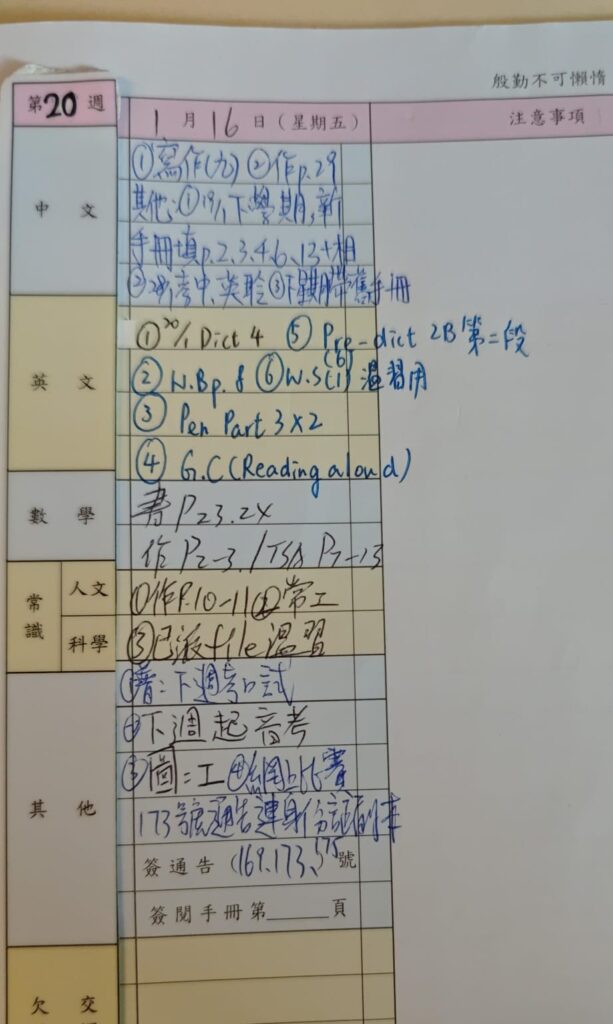 殷勤不可懶惰
第20週
1月16日（星期五）
注意事項
中文
①寫作(九) ②作p.29
其他:①19/1下學期,新
手冊填p.2,3,4,6,13+相
考中,英聆 ③下星期帶舊手冊
英文
①20/1 Dict 4 ⑤ Pre-dict 2B 第二段
② W.B p.8 ⑥ W.S(1) 溫習用
(6)
③ Pen Part 3×2
④ G.C (Reading aloud)
數學
書 P23.24
作 P2-3./TSA P7-13
常識
人文
①作P.10-11 ②常工
科學
③已派file溫習
其他
①普:下週考口試
②下週起音考
③圖:工 ④網上比賽
173號通告連身份証副本
簽通告(169.173.175號
簽閱手冊第______頁
欠交